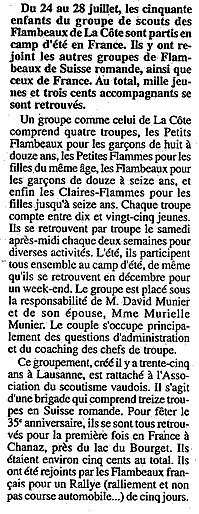 Du 24 au 28 juillet, les cinquante
enfants du groupe de scouts des
Flambeaux de La Côte sont partis en
camp d'été en France. Ils y ont re-
joint les autres groupes de Flam-
beaux de Suisse romande, ainsi que
ceux de France. Au total, mille jeu-
nes et trois cents accompagnants se
sont retrouvés.
Un groupe comme celui de La Côte
comprend quatre troupes, les Petits
Flambeaux pour les garçons de huit à
douze ans, les Petites Flammes pour les
filles du même âge, les Flambeaux pour
les garçons de douze à seize ans, et
enfin les Claires-Flammes pour les
filles jusqu'à seize ans. Chaque troupe
compte entre dix et vingt-cinq jeunes.
Ils se retrouvent par troupe le samedi
après-midi chaque deux semaines pour
diverses activités. L'été, ils participent
tous ensemble au camp d'été, de même
qu'ils se retrouvent en décembre pour
un week-end. Le groupe est placé sous
la responsabilité de M. David Munier
et de son épouse, Mme Murielle
Munier. Le couple s'occupe principa-
lement des questions d'administration
et du coaching des chefs de troupe.
Ce groupement, créé il y a trente-cinq
ans à Lausanne, est rattaché à l'Asso-
ciation du scoutisme vaudois. Il s'agit
d'une brigade qui comprend treize trou-
pes en Suisse romande. Pour fêter le
35e anniversaire, ils se sont tous retrou-
vés pour la première fois en France à
Chanaz, près du lac du Bourget. Ils
étaient environ cinq cents au total. Ils
ont été rejoints par les Flambeaux fran-
çais pour un Rallye (ralliement et non
pas course automobile...) de cinq jours.